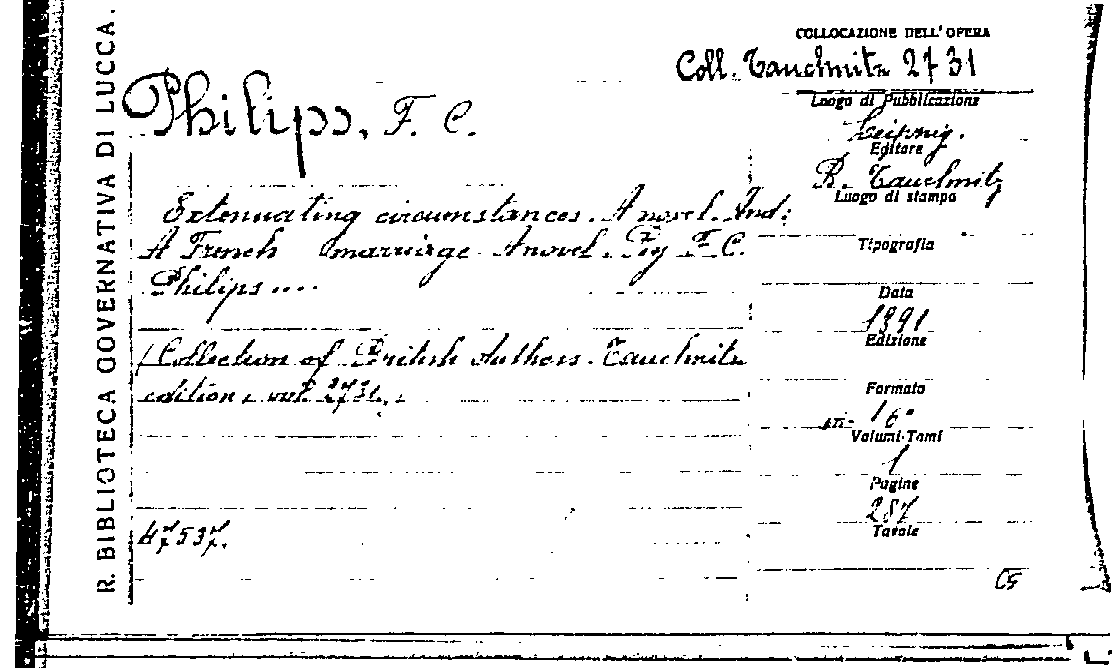 R. BIBLIOTECA GOVERNATIVA DI LUCCA.
COLLOCAZIONE DELL' OPERA
Coll. Tauchnitz 2731
Philips, F. C.
Luogo di Pubblicazione
Leipzig.
Editore
B. Tauchnitz
Luogo di stampa
Extenuating circumstances. A novel. And:
A French marriage. A novel. By F. C.
Philips ....
Tipografia
Data
1891
Edizione
(Collection of British Authors. Tauchnitz
edition, vol. 2731.
Formato
in- 16°
Volumi-Tomi
1
Pagine
287
Tavole
47537.